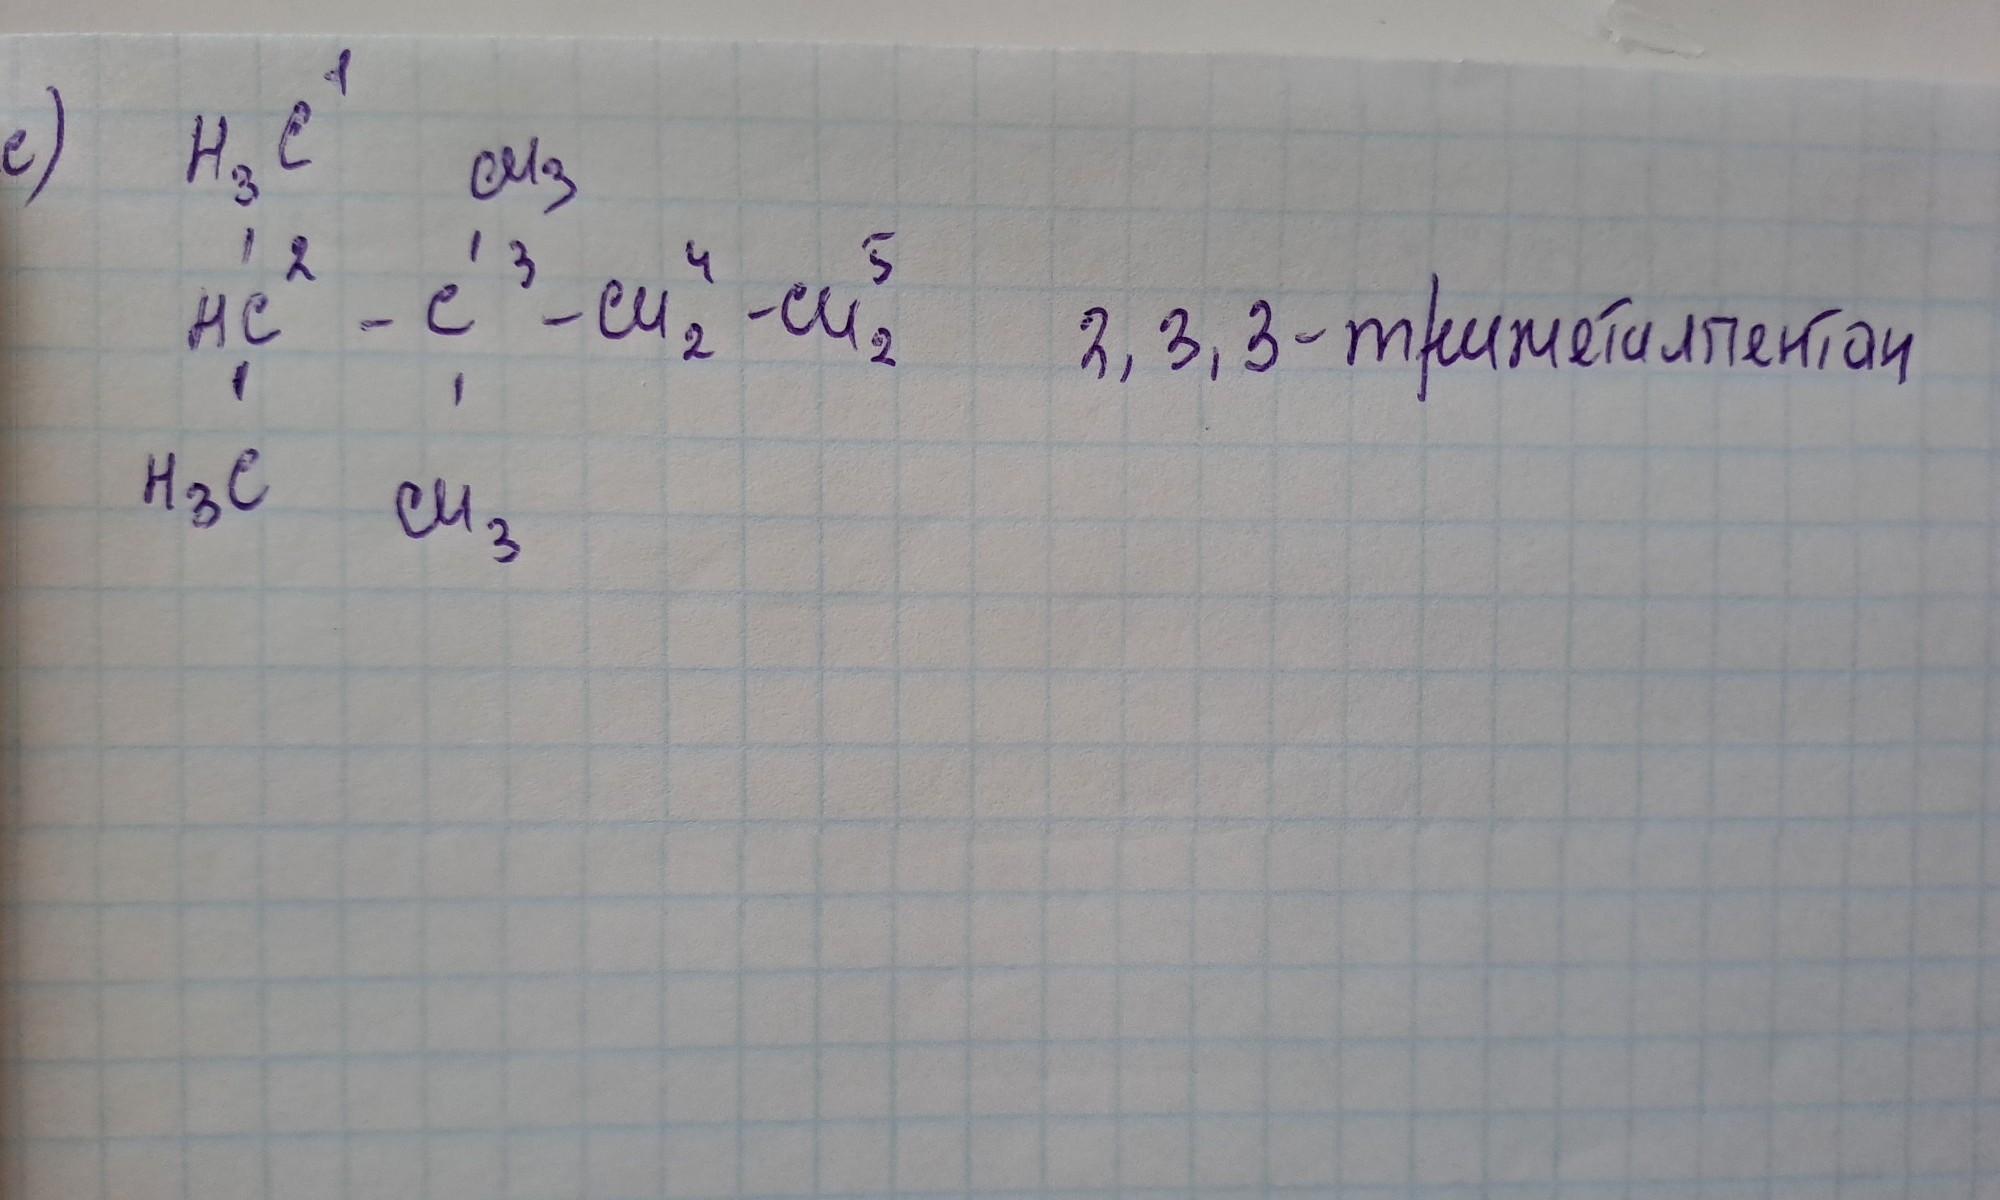 e) H₃C¹ CH₃
HC² - C³ - CH₂⁴ - CH₂⁵ 2, 3, 3 - триметилпентан
H₃C CH₃